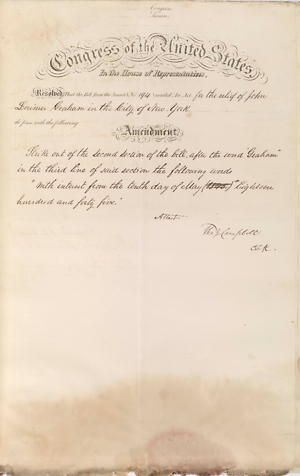 Congress
Congress of the United States,
In the House of Representatives,
Resolved, that the Bill from the Senate, No. 194 entitled An Act for the relief of John
Lorimer Graham in the City of New York.
do pass with the following
Amendment,
Strike out of the second section of the bill, after the word Graham"
in the third line of said section the following words
"with interest from the tenth day of May Eighteen
hundred and forty five."
Attest.
Campbell
Clk.